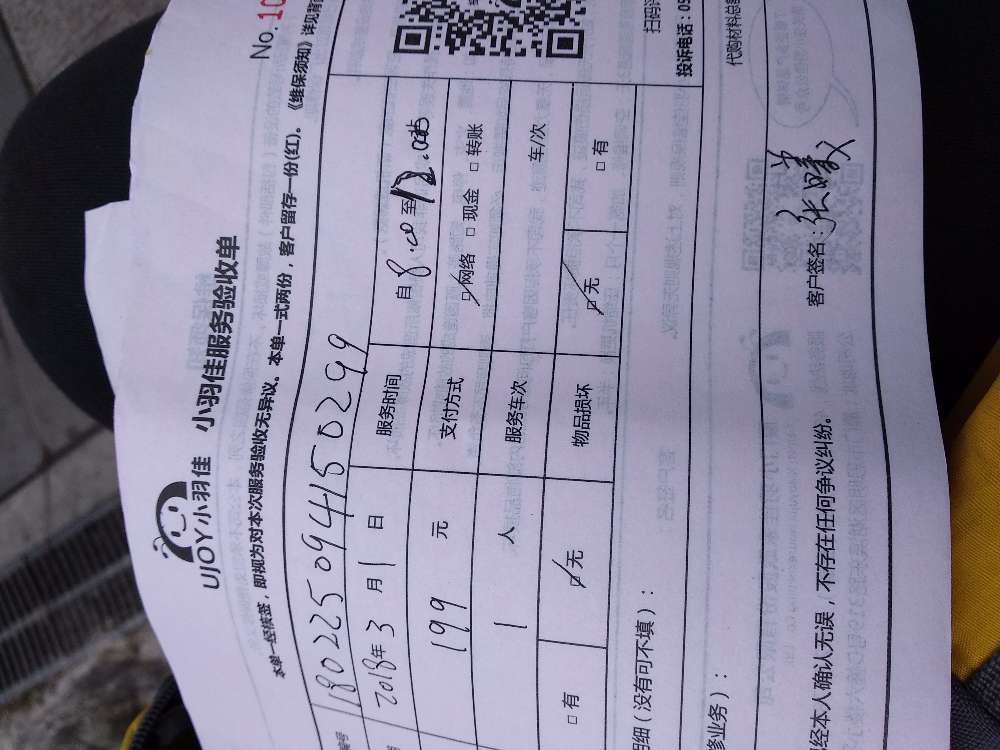 No. 10
UJOY小羽佳 小羽佳服务验收单
本单一经核签，即视为对本次服务验收无异议。本单一式两份，客户留存一份(红)。《维保须知》详见背
编号 180225094415 0299
2018年3月1日 服务时间 自8:00至12:00
199元 支付方式 □网络 □现金 □转账
1人 服务车次 车/次
□有 □无 物品损坏 □无 □有
扫码
投诉电话：05
明细（没有可不填）：
代购材料总
修业务）：
经本人确认无误，不存在任何争议纠纷。 客户签名：